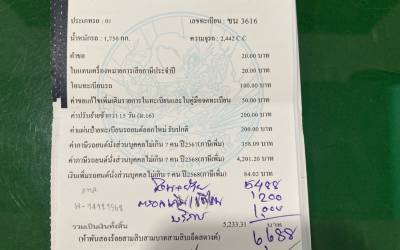 ประเภทรถ : 01 เลขทะเบียน : ขน 3616
น้ำหนักรถ : 1,750 กก. ความจุรถ : 2,442 C.C
ค่าขอ 20.00 บาท
ใบแทนเครื่องหมายการเสียภาษีประจำปี 20.00 บาท
โอนทะเบียนรถ 100.00 บาท
ค่าขอแก้ไขเพิ่มเติมรายการในทะเบียนและใบคู่มือจดทะเบียน 50.00 บาท
ค่าปรับย้ายช้ากว่า 15 วัน (ม.16) 200.00 บาท
ค่าแผ่นป้ายทะเบียนรถยนต์ออกใหม่ รับปกติ 200.00 บาท
ค่าภาษีรถยนต์นั่งส่วนบุคคลไม่เกิน 7 คน ปี2567(ภาษีเพิ่ม) 358.09 บาท
ค่าภาษีรถยนต์นั่งส่วนบุคคลไม่เกิน 7 คน ปี2568(ภาษีเพิ่ม) 4,201.20 บาท
เงินเพิ่มรถยนต์นั่งส่วนบุคคลไม่เกิน 7 คน ปี2568(ภาษีเพิ่ม) 84.02 บาท
5,488
200
1,000
รวมเป็นเงินทั้งสิ้น 5,233.31 บาท
(ห้าพันสองร้อยสามสิบสามบาทสามสิบเอ็ดสตางค์)
6,688